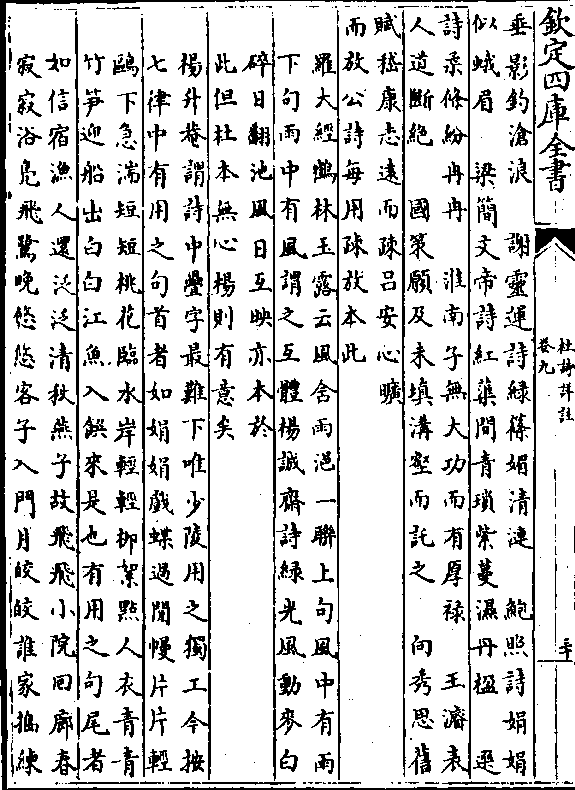 欽定四庫全書
杜詩詳註
卷九
二十
垂影釣滄浪 謝靈運詩綠篠媚清漣 鮑照詩娟娟
似蛾眉 梁簡文帝詩紅蕖間青瑣紫蔓濕丹楹 逕
詩柔條紛冉冉 淮南子無大功而有厚祿 王濬表
人道斷絕 國策願及未填溝壑而託之 向秀思舊
賦嵇康志遠而疎呂安心曠
而放公詩每用疎放本此
羅大經鶴林玉露云風含雨浥一聯上句風中有雨
下句雨中有風謂之互體楊誠齋詩綠光風動麥白
碎日翻池風日互映亦本於
此但杜本無心楊則有意矣
楊升菴謂詩中疊字最難下唯少陵用之獨工今按
七律中有用之句首者如娟娟戲蝶過閒幔片片輕
鷗下急湍短短桃花臨水岸輕輕柳絮點人衣青青
竹笋迎船出白白江魚入饌來是也有用之句尾者
如信宿漁人還泛泛清秋燕子故飛飛小院回廊春
寂寂浴鳧飛鷺晚悠悠客子入門月皎皎誰家搗練